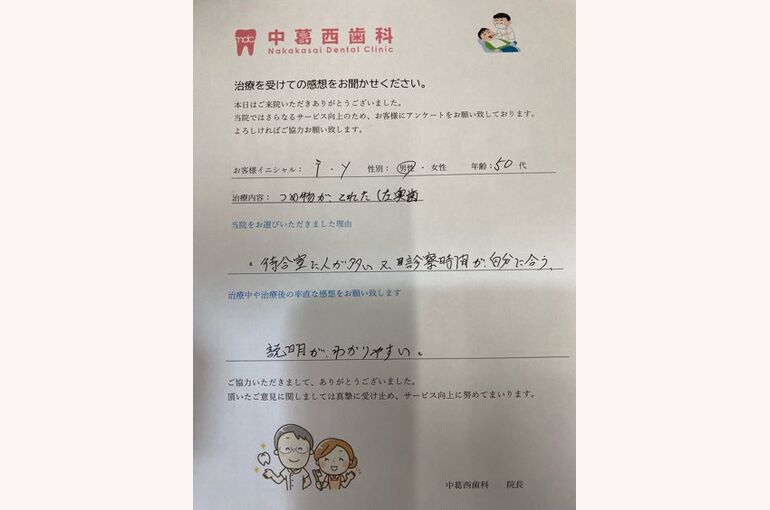 ndc
中葛西歯科
Nakakasai Dental Clinic
治療を受けての感想をお聞かせください。
本日はご来院いただきありがとうございました。
当院ではさらなるサービス向上のため、お客様にアンケートをお願い致しております。
よろしければご協力お願い致します。
お客様イニシャル： ・y 性別： 男性 ・ 女性 年齢：50 代
治療内容： つめ物が、とれた(左奥歯
当院をお選びいただきました理由
。待合室に人が多い 又、診察時間が、自分に合う、
治療中や治療後の率直な感想をお願い致します
説明が、わかりやすい。
ご協力いただきまして、ありがとうございました。
頂いたご意見に関しましては真摯に受け止め、サービス向上に努めてまいります。
中葛西歯科 院長